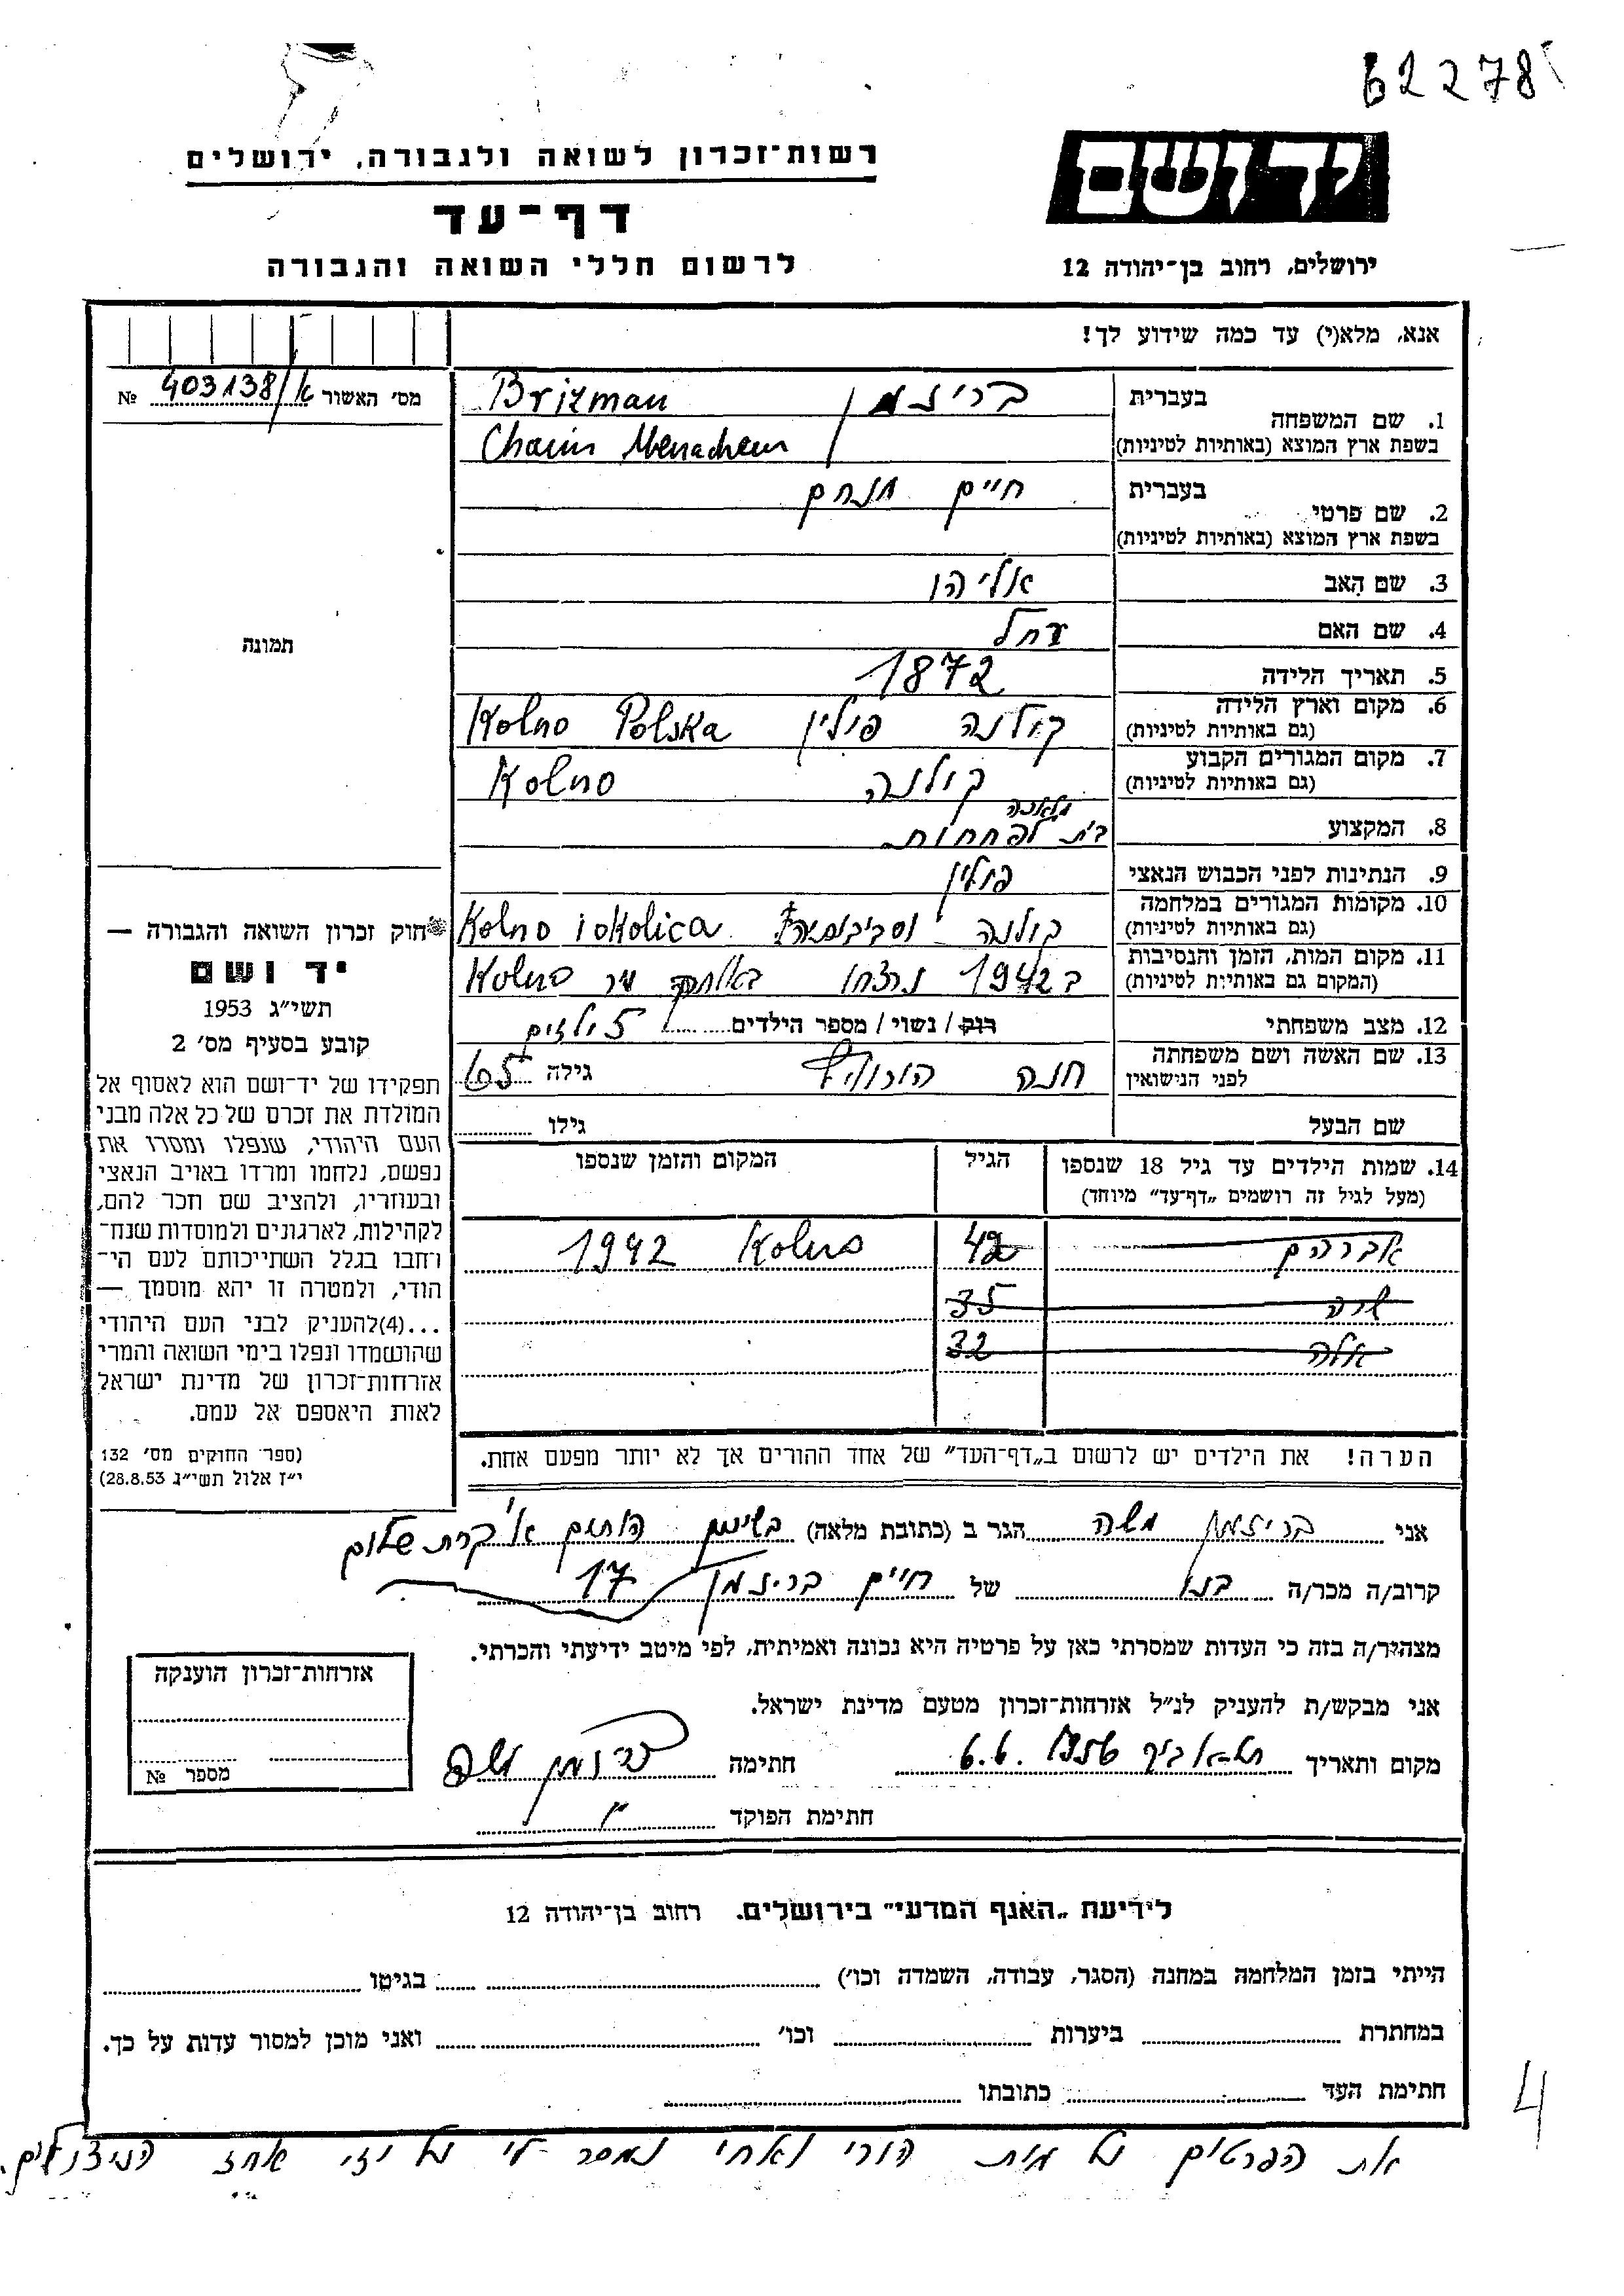 62278
יד ושם
ירושלים, רחוב בן־יהודה 12
רשות־זכרון לשואה ולגבורה, ירושלים
דף־עד
לרשום חללי השואה והגבורה
אנא, מלא(י) עד כמה שידוע לך!
מס׳ האשור 403138/א №
1. שם המשפחה בעברית בריזמן Brizman
בשפת ארץ המוצא (באותיות לטיניות) Chaim Menachem
2. שם פרטי בעברית חיים מנחם
בשפת ארץ המוצא (באותיות לטיניות)
3. שם האב אליהו
4. שם האם
5. תאריך הלידה 1872
6. מקום וארץ הלידה קולנה פולין Kolno Polska
(גם באותיות לטיניות)
7. מקום המגורים הקבוע קולנה Kolno
(גם באותיות לטיניות)
8. המקצוע בית מלאכה לפחחות
9. הנתינות לפני הכבוש הנאצי פולין
10. מקומות המגורים במלחמה קולנה Kolno i okolica
(גם באותיות לטיניות)
11. מקום המות, הזמן והנסיבות ב 1942 נרצחו עיר Kolno
(המקום גם באותיות לטיניות)
12. מצב משפחתי רוק / נשוי / מספר הילדים 5 ילדים
13. שם האשה ושם משפחתה חנה גילה 65
לפני הנישואין
שם הבעל גילו
14. שמות הילדים עד גיל 18 שנספו הגיל המקום והזמן שנספו
(מעל לגיל זה רושמים „דף־עד" מיוחד)
אברהם 42 Kolno 1942
שרה 35
אלה 32
הערה! את הילדים יש לרשום ב„דף־העד" של אחד ההורים אך לא יותר מפעם אחת.
תמונה
חוק זכרון השואה והגבורה —
יד ושם
תשי״ג 1953
קובע בסעיף מס׳ 2
תפקידו של יד־ושם הוא לאסוף אל
המולדת את זכרם של כל אלה מבני
העם היהודי, שנפלו ומסרו את
נפשם, נלחמו ומרדו באויב הנאצי
ובעוזריו, ולהציב שם וזכר להם,
לקהילות, לארגונים ולמוסדות שנח־
רחבו בגלל השתייכותם לעם הי־
הודי, ולמטרה זו יהא מוסמך —
...(4)להעניק לבני העם היהודי
שהושמדו ונפלו בימי השואה והמרי
אזרחות־זכרון של מדינת ישראל
לאות היאספם אל עמם.
(ספר החוקים מס׳ 132
י״ז אלול תשי״ג 28.8.53)
אני בריזמן משה הגר ב (כתובת מלאה) קרית שלום
קרוב/ה מכר/ה בנו של חיים בריזמן 17
מצהיר/ה בזה כי העדות שמסרתי כאן על פרטיה היא נכונה ואמיתית, לפי מיטב ידיעתי והכרתי.
אני מבקש/ת להעניק לנ״ל אזרחות־זכרון מטעם מדינת ישראל.
מקום ותאריך תל־אביב 6.6.1956 חתימה בריזמן משה
חתימת הפוקד
אזרחות־זכרון הוענקה
מספר №
לידיעת „האגף המדעי" בירושלים. רחוב בן־יהודה 12
הייתי בזמן המלחמה במחנה (הסגר, עבודה, השמדה וכו׳) בגיטו
במחתרת ביערות וכו׳ ואני מוכן למסור עדות על כך.
חתימת העד כתובתו
את הפרטים על מות הורי ואחי נמסר לי על ידי אחד הניצולים.
4